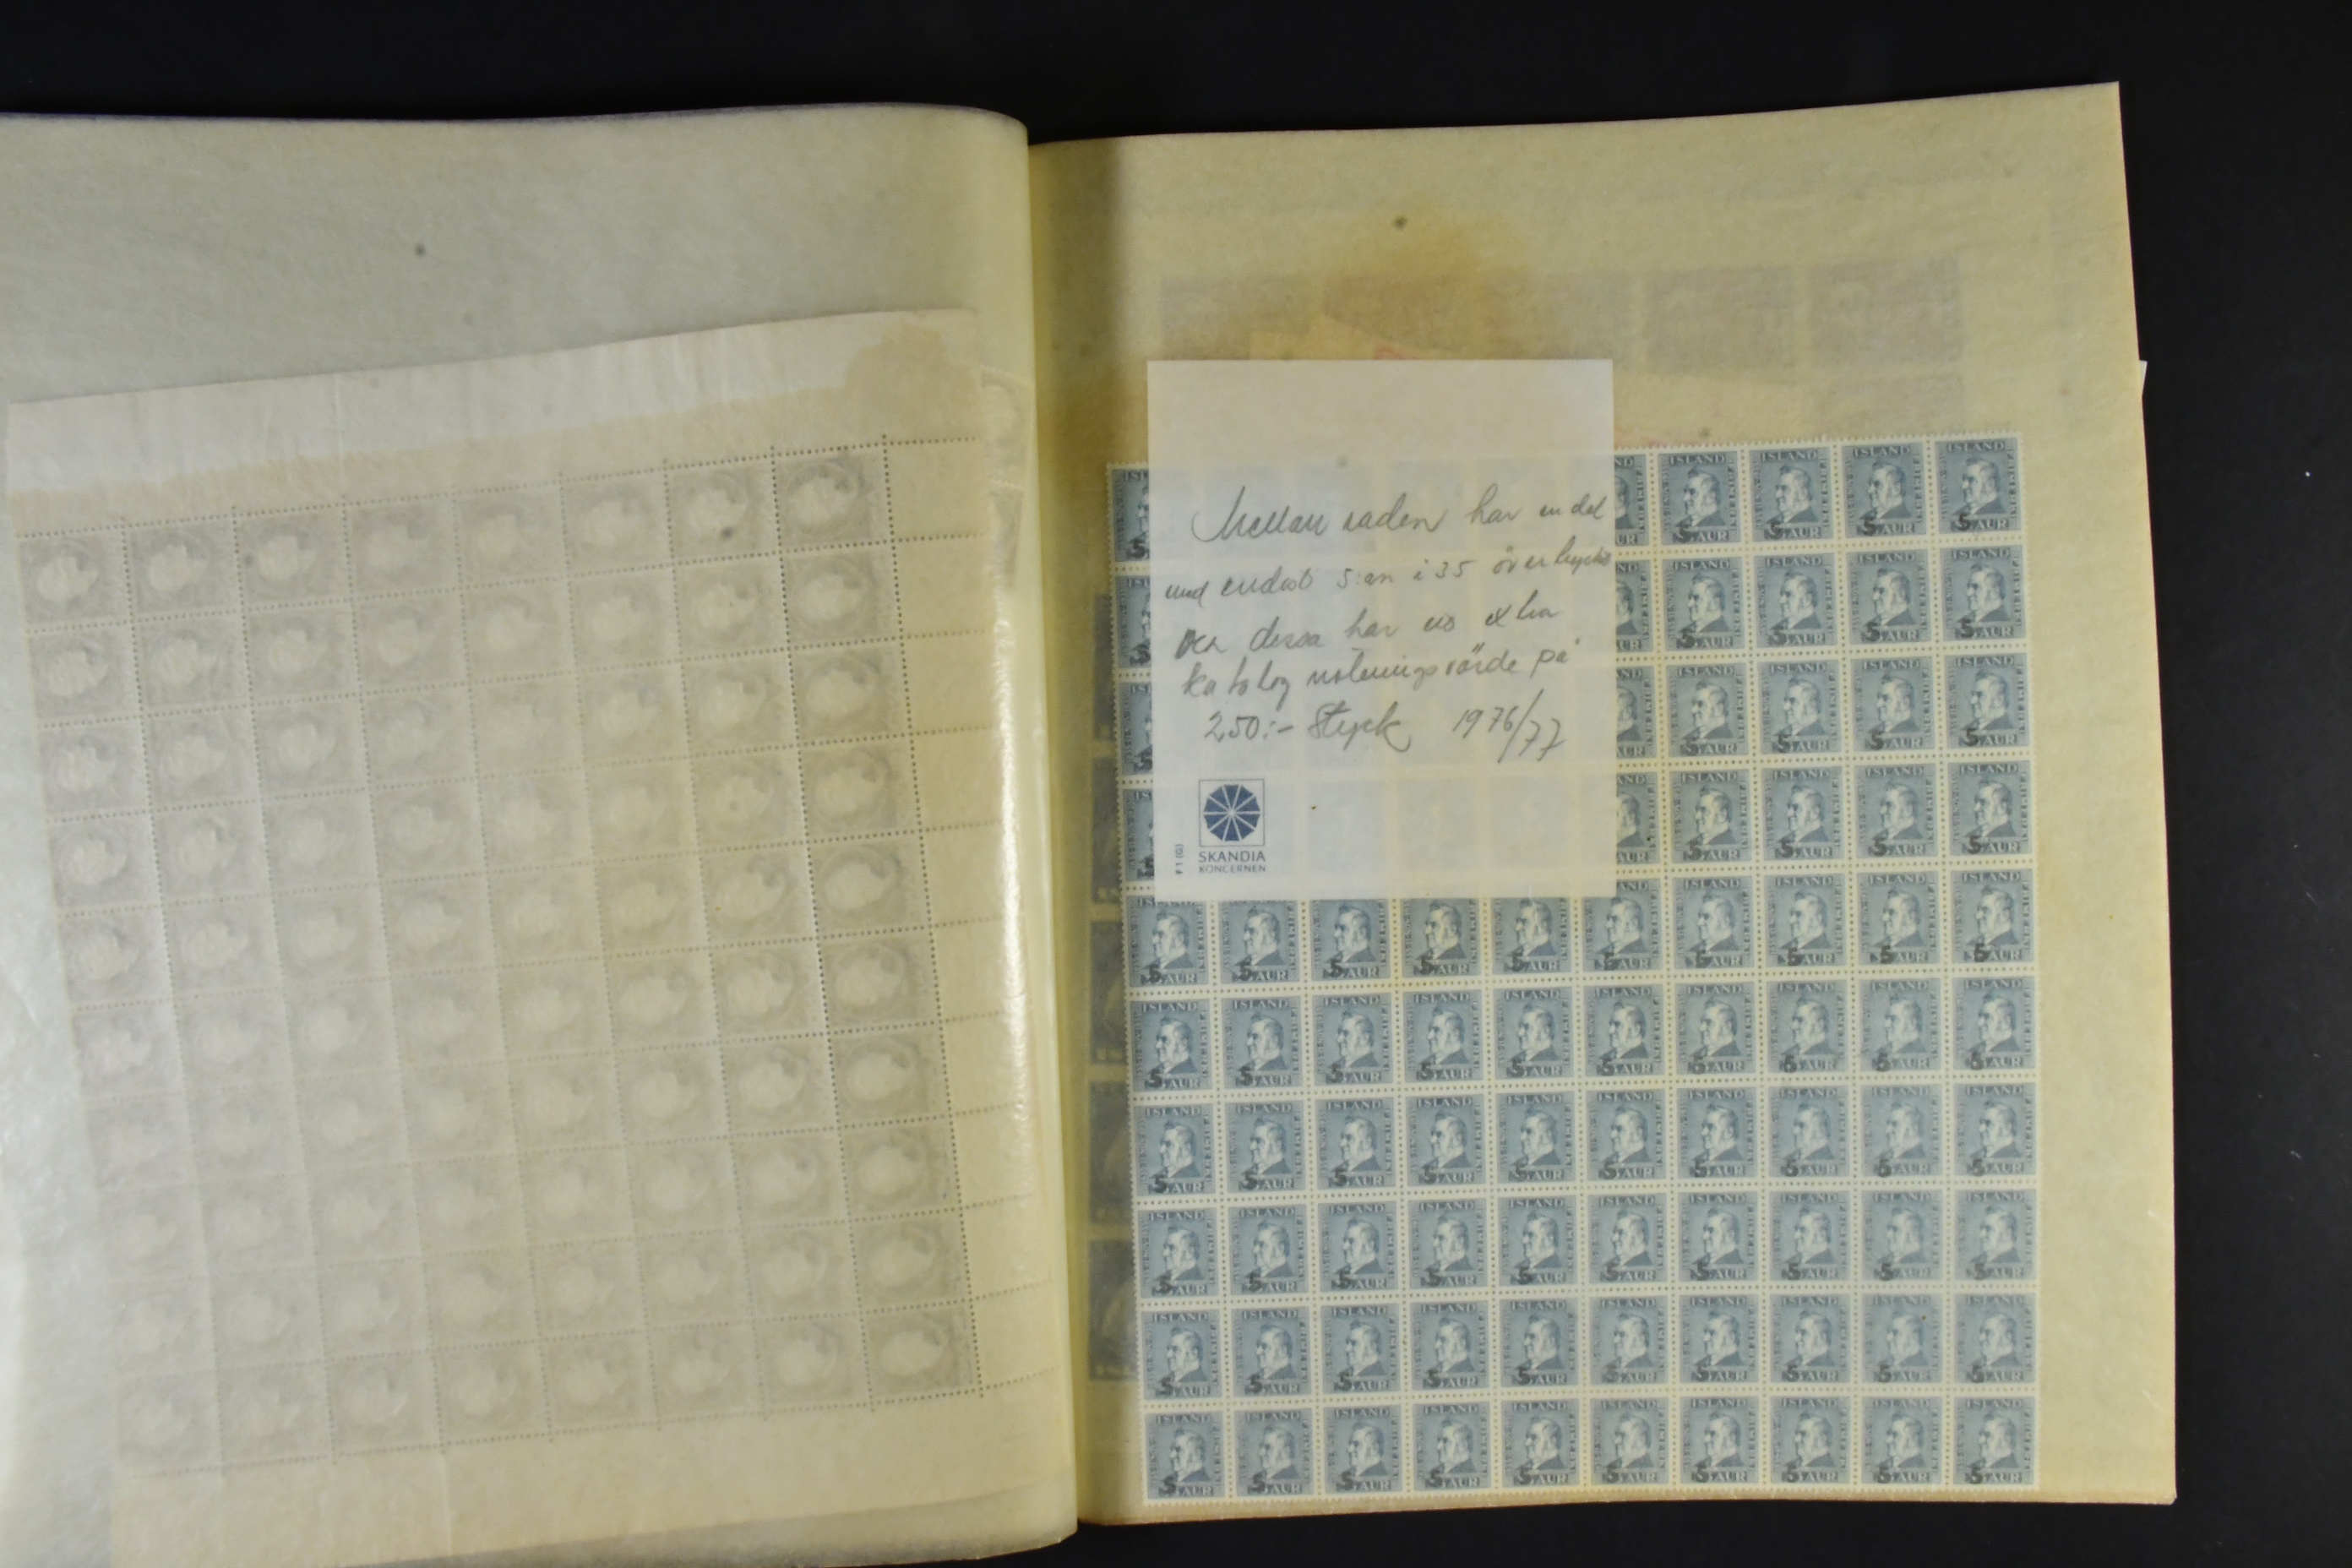 Mellan raden har en del
med endast 5:an i 35 övertryckt
och dessa har en extra
katalog noteringsvärde på
250:- Styck 1976/77
F 1 (G)
SKANDIA
KONCERNEN
ISLAND
5 AUR